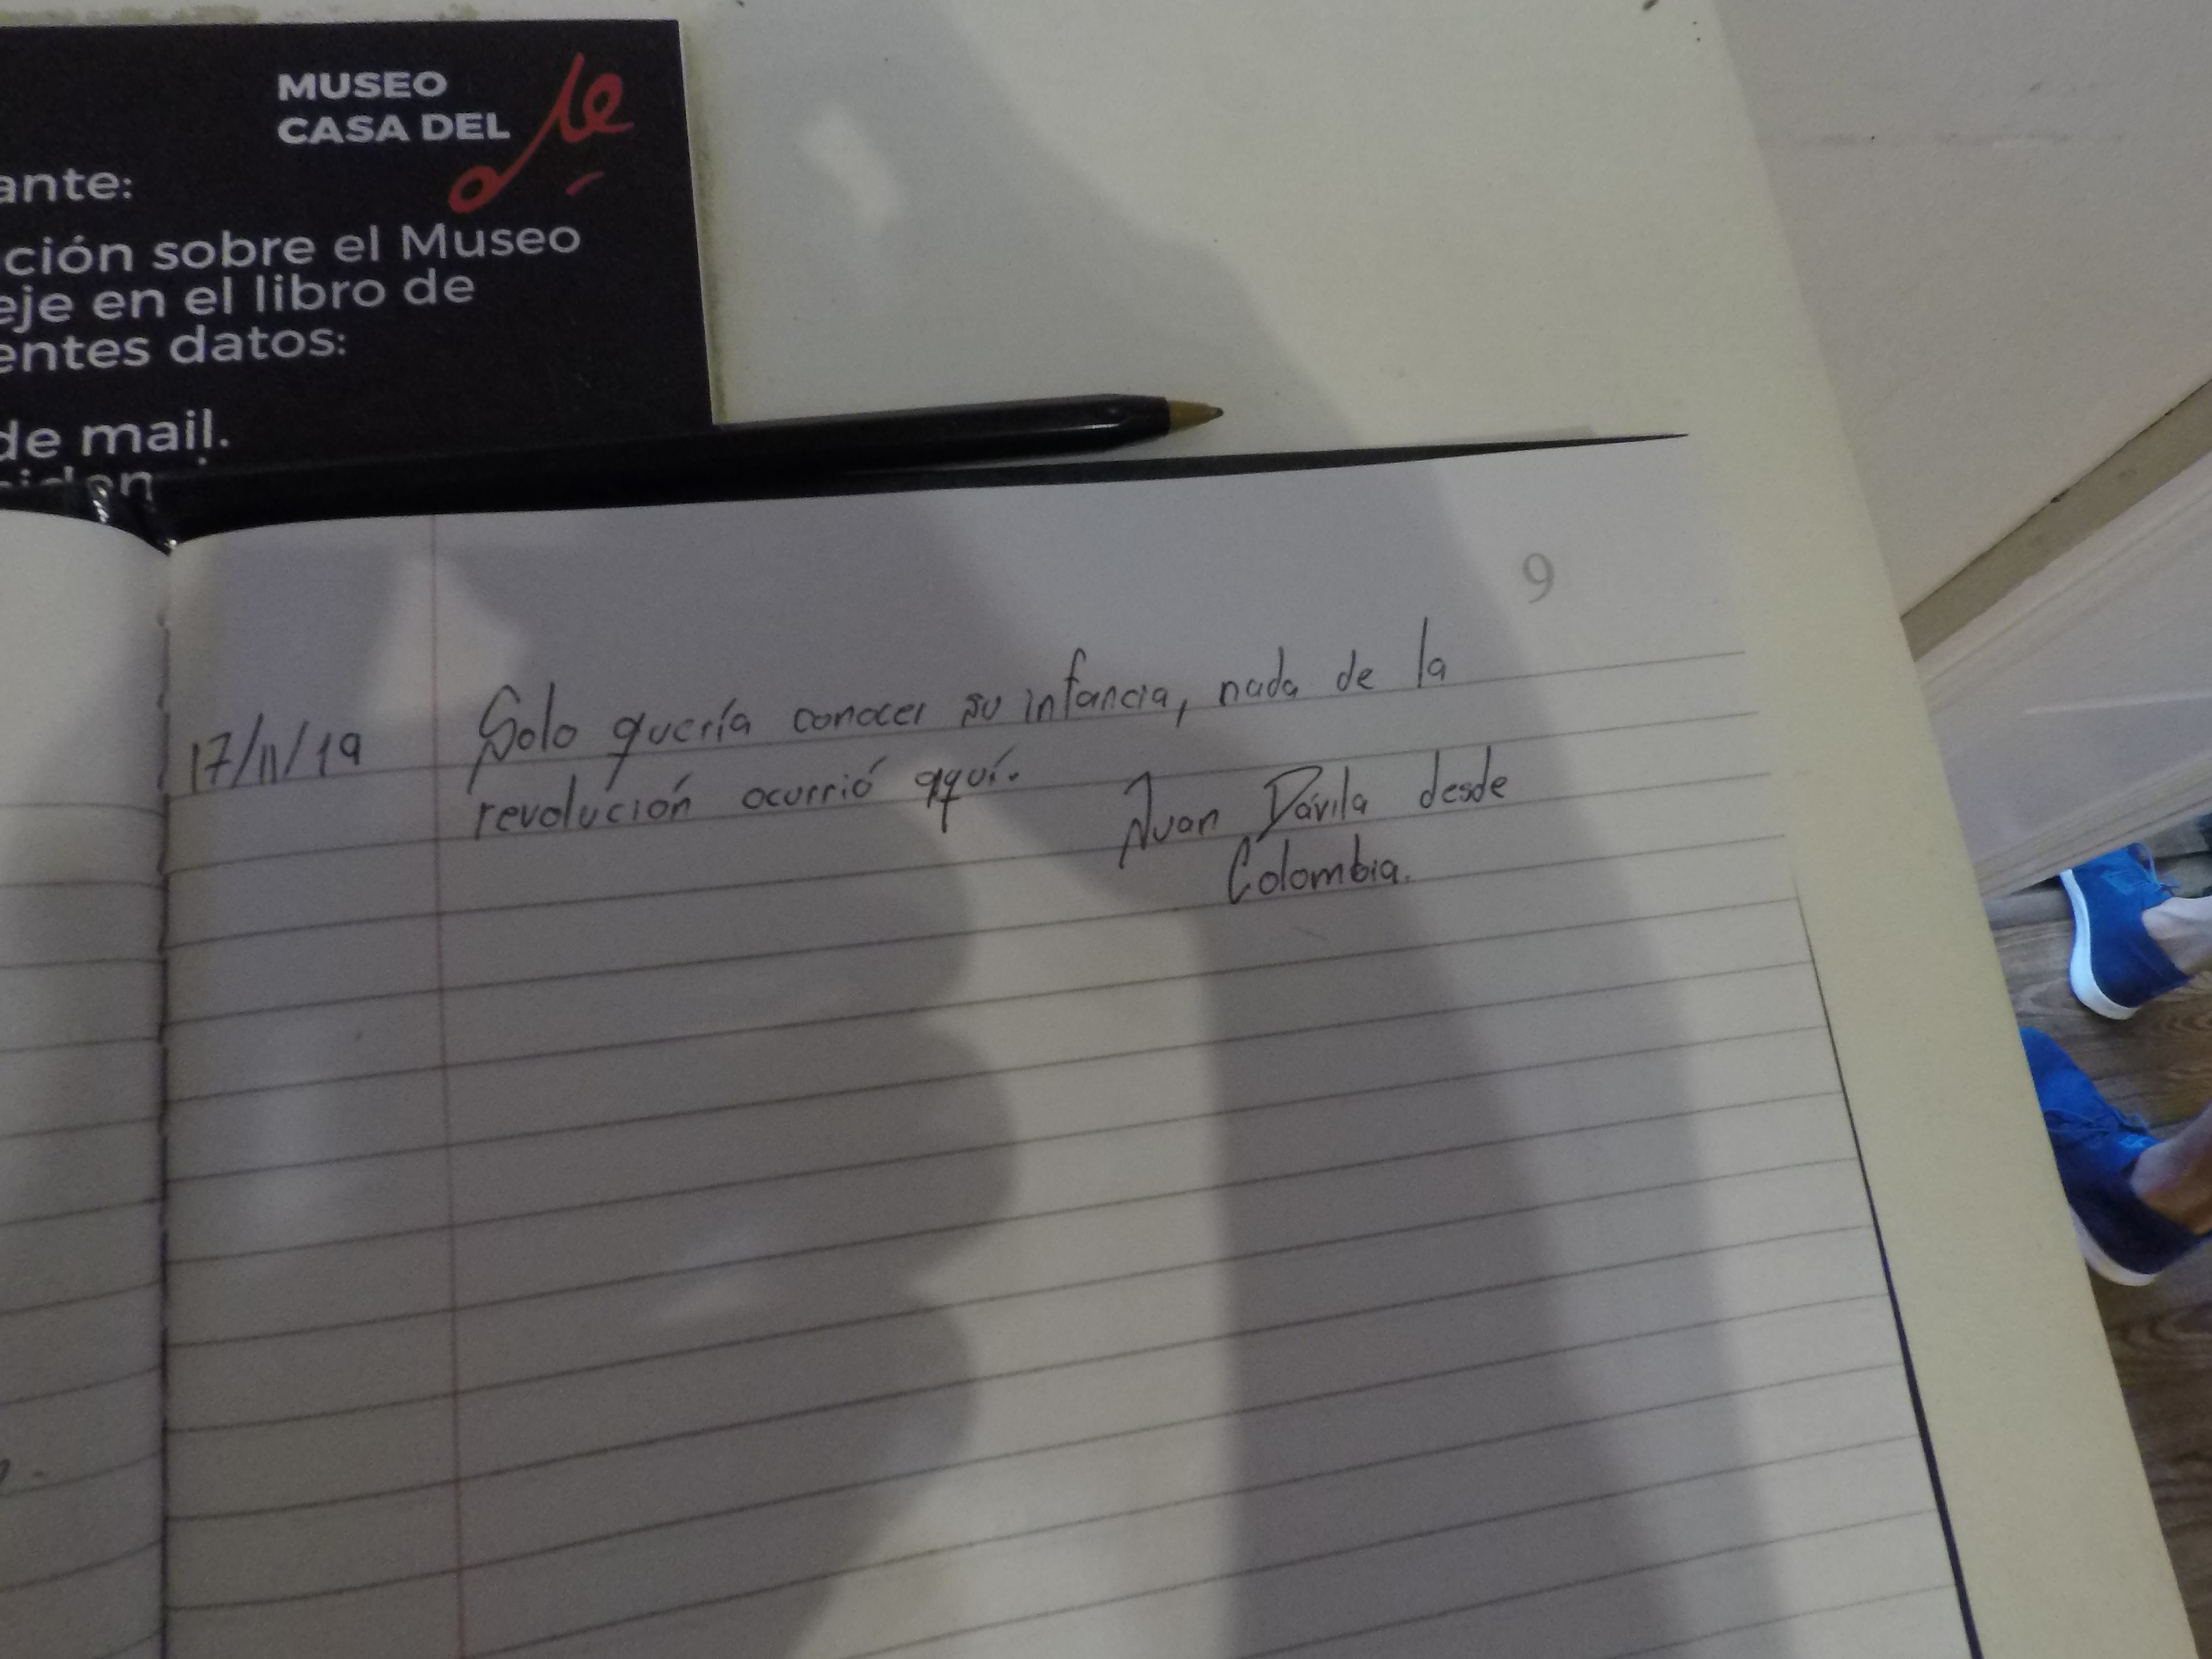 MUSEO
CASA DEL
ante:
ción sobre el Museo
eje en el libro de
entes datos:
de mail.
9
17/11/19 Solo quería conocer su infancia, nada de la
revolución ocurrió aquí.
Juan Dávila desde
Colombia.